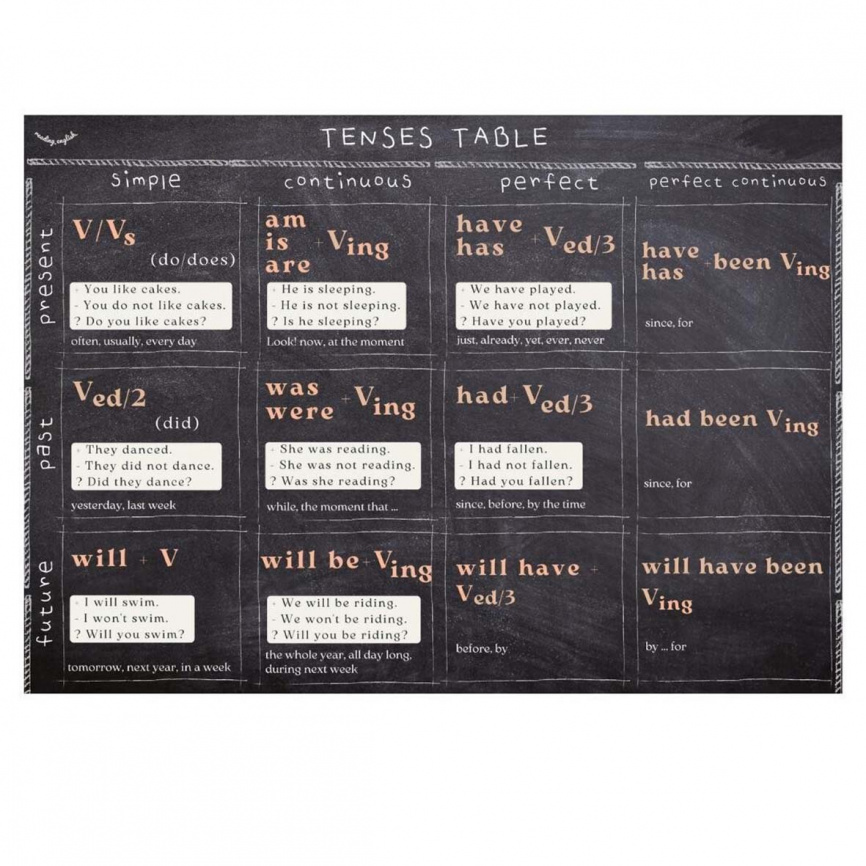 reading.english
TENSES TABLE
simple
continuous
perfect
perfect continuous
present
V/Vs
(do/does)
+ You like cakes.
- You do not like cakes.
? Do you like cakes?
often, usually, every day
am
is
are
+ Ving
+ He is sleeping.
- He is not sleeping.
? Is he sleeping?
Look! now, at the moment
have
has
+ Ved/3
+ We have played.
- We have not played.
? Have you played?
just, already, yet, ever, never
have
has
+ been Ving
since, for
past
Ved/2
(did)
+ They danced.
- They did not dance.
? Did they dance?
yesterday, last week
was
were
+ Ving
+ She was reading.
- She was not reading.
? Was she reading?
while, the moment that ...
had + Ved/3
+ I had fallen.
- I had not fallen.
? Had you fallen?
since, before, by the time
had been Ving
since, for
future
will + V
+ I will swim.
- I won't swim.
? Will you swim?
tomorrow, next year, in a week
will be + Ving
+ We will be riding.
- We won't be riding.
? Will you be riding?
the whole year, all day long,
during next week
will have +
Ved/3
before, by
will have been
Ving
by ... for